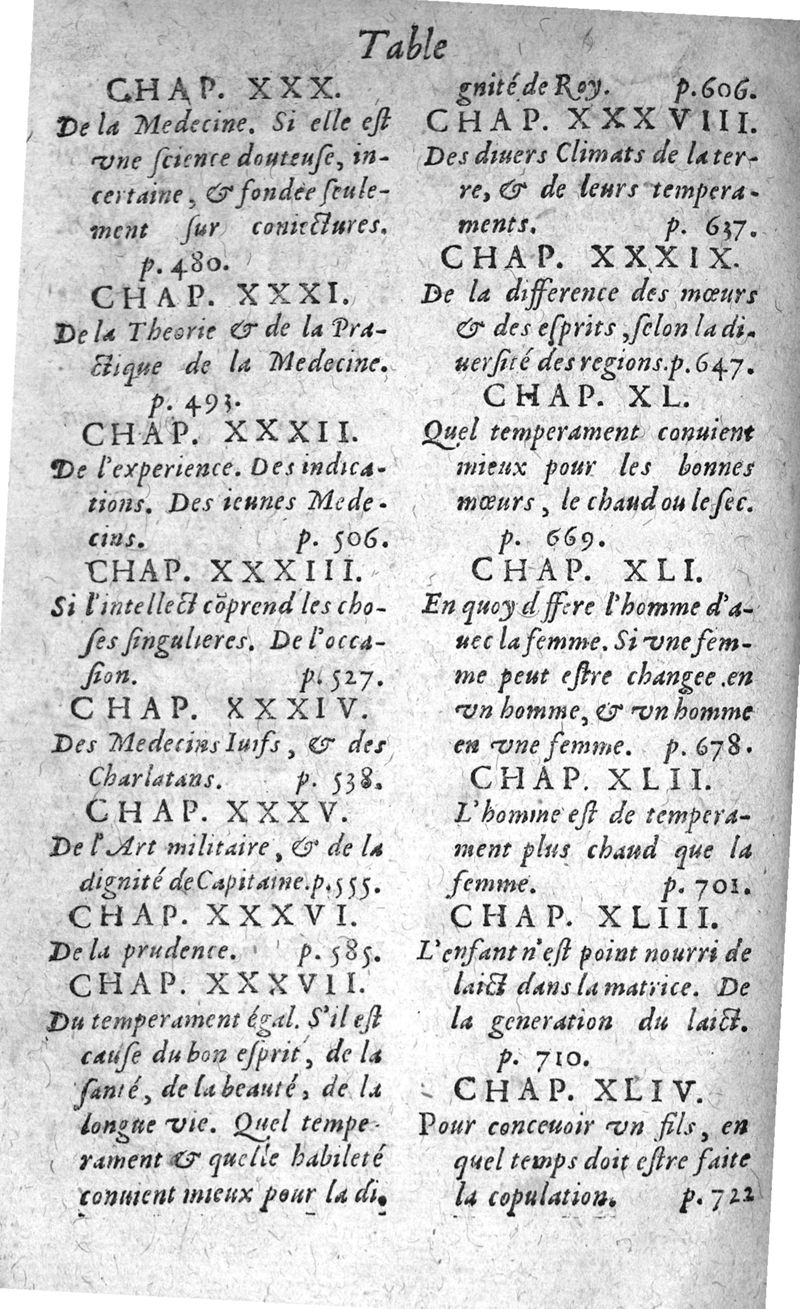 Table
CHAP. XXX.
De la Medecine. Si elle eſt
vne ſcience douteuſe, in-
certaine, & fondée ſeule-
ment ſur coniectures.
p. 480.
CHAP. XXXI.
De la Theorie & de la Pra-
ctique de la Medecine.
p. 493.
CHAP. XXXII.
De l'experience. Des indica-
tions. Des ieunes Mede-
cins. p. 506.
CHAP. XXXIII.
Si l'intellect cõprend les cho-
ſes ſingulieres. De l'occa-
ſion. p. 527.
CHAP. XXXIV.
Des Medecins Iuifs, & des
Charlatans. p. 538.
CHAP. XXXV.
De l'Art militaire, & de la
dignité de Capitaine. p. 555.
CHAP. XXXVI.
De la prudence. p. 585.
CHAP. XXXVII.
Du temperament égal. S'il eſt
cauſe du bon eſprit, de la
ſanté, de la beauté, de la
longue vie. Quel tempe-
rament & quelle habileté
conuient mieux pour la di-
gnité de Roy. p. 606.
CHAP. XXXVIII.
Des diuers Climats de la ter-
re, & de leurs tempera-
ments. p. 637.
CHAP. XXXIX.
De la difference des mœurs
& des eſprits, ſelon la di-
uerſité des regions. p. 647.
CHAP. XL.
Quel temperament conuient
mieux pour les bonnes
mœurs, le chaud ou le ſec.
p. 669.
CHAP. XLI.
En quoy d ffere l'homme d'a-
uec la femme. Si vne fem-
me peut eſtre changee en
vn homme, & vn homme
en vne femme. p. 678.
CHAP. XLII.
L'homme eſt de tempera-
ment plus chaud que la
femme. p. 701.
CHAP. XLIII.
L'enfant n'eſt point nourri de
laict dans la matrice. De
la generation du laict.
p. 710.
CHAP. XLIV.
Pour conceuoir vn fils, en
quel temps doit eſtre faite
la copulation. p. 722